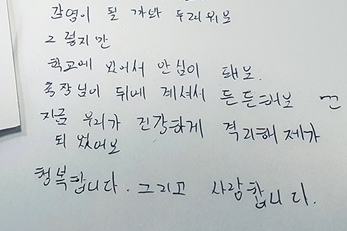 감염이 될 까봐 두려워요
그렇지만
학교에 있어서 안심이 돼요.
옥장님이 뒤에 계셔서 든든해요
지금 우리가 건강하게 격리해제가
되었어요
행복합니다. 그리고 사랑합니다.